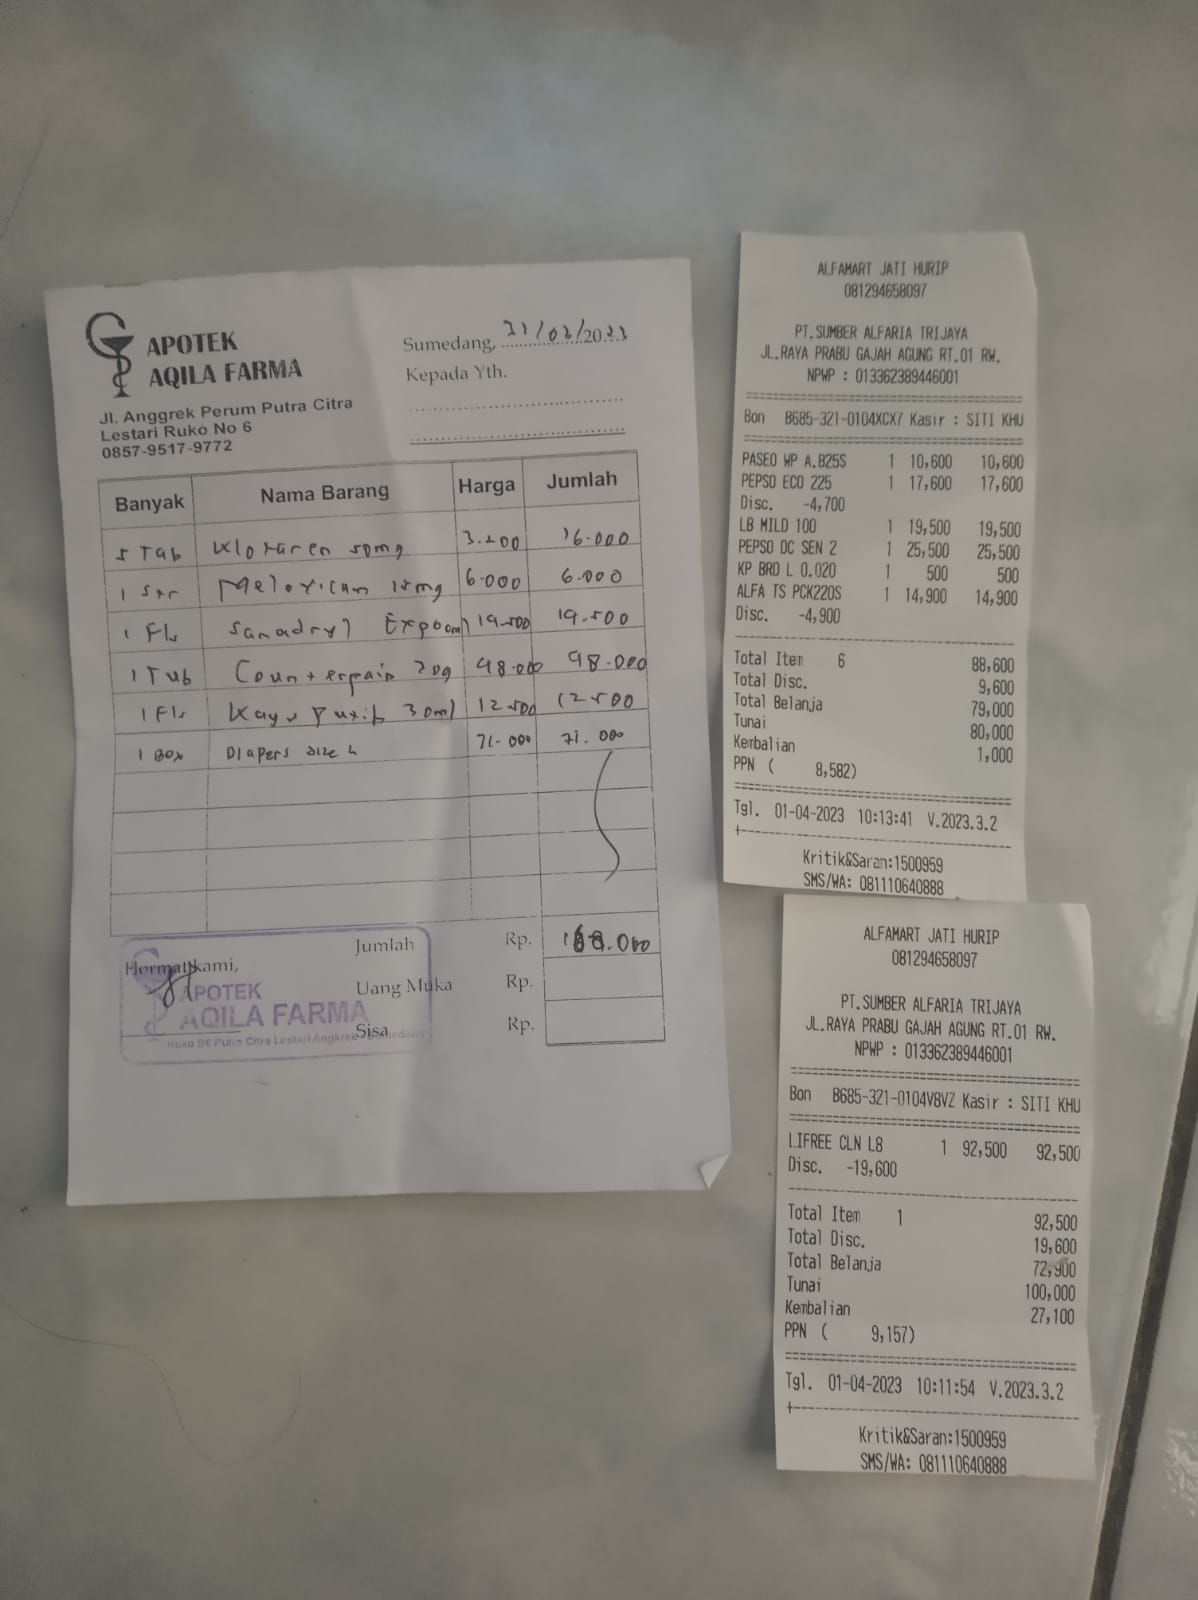 APOTEK
AQILA FARMA
Jl. Anggrek Perum Putra Citra
Lestari Ruko No 6
0857-9517-9772
Sumedang, 31/03/2023
Kepada Yth.
Banyak Nama Barang Harga Jumlah
5 Tab Kloraren 50mg 3.200 16.000
1 Str Meloxicam 15mg 6.000 6.000
1 Fls Sanadryl Exp 19.500 19.500
1 Tub Counterpain 98.000 98.000
1 Fls Kayu Putih 30ml 12.500 12.500
1 Box Diapers size 71.000 71.000
Jumlah Rp.
Hormat kami,
Uang Muka Rp.
Sisa Rp.
APOTEK
AQILA FARMA
ALFAMART JATI HURIP
081294658097
PT.SUMBER ALFARIA TRIJAYA
JL.RAYA PRABU GAJAH AGUNG RT.01 RW.
NPWP : 013362389446001
Bon B685-321-0104XCX7 Kasir : SITI KHU
PASEO WP A.B25S 1 10,600 10,600
PEPSO ECO 225 1 17,600 17,600
Disc. -4,700
LB MILD 100 1 19,500 19,500
PEPSO DC SEN 2 1 25,500 25,500
KP BRD L 0.020 1 500 500
ALFA TS PCK220S 1 14,900 14,900
Disc. -4,900
Total Item 6 88,600
Total Disc. 9,600
Total Belanja 79,000
Tunai 80,000
Kembalian 1,000
PPN ( 8,582)
Tgl. 01-04-2023 10:13:41 V.2023.3.2
Kritik&Saran:1500959
SMS/WA: 081110640888
ALFAMART JATI HURIP
081294658097
PT.SUMBER ALFARIA TRIJAYA
JL.RAYA PRABU GAJAH AGUNG RT.01 RW.
NPWP : 013362389446001
Bon B685-321-0104V8VZ Kasir : SITI KHU
LIFREE CLN L8 1 92,500 92,500
Disc. -19,600
Total Item 1 92,500
Total Disc. 19,600
Total Belanja 72,900
Tunai 100,000
Kembalian 27,100
PPN ( 9,157)
Tgl. 01-04-2023 10:11:54 V.2023.3.2
Kritik&Saran:1500959
SMS/WA: 081110640888